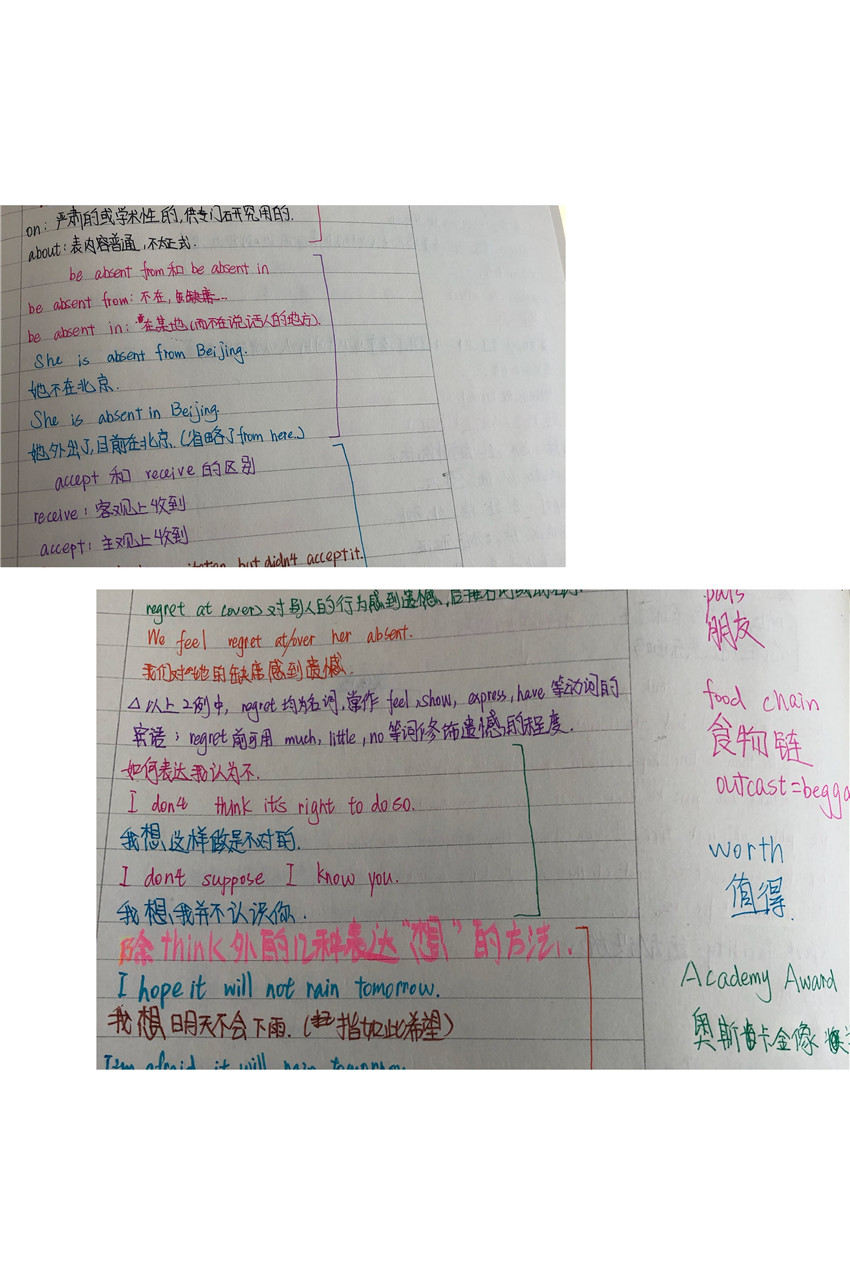 on：严肃的或学术性的，供专门研究用的.
about：表内容普通，不太正式.
be absent from 和 be absent in
be absent from：不在，缺席...
be absent in：在某地(而不在说话人的地方).
She is absent from Beijing.
她不在北京.
She is absent in Beijing.
她外出了，目前在北京.(省略了from here.)
accept 和 receive 的区别
receive：客观上收到
accept：主观上收到
but didn4 accept it.
regret at (over) 对别人的行为感到遗憾，后接
We feel regret at/over her absent.
我们对她的缺席感到遗憾.
△以上2例中，regret均为名词，常作 feel, show, express, have 等动词的
宾语；regret前可用 much, little, no 等词修饰遗憾的程度.
如何表达我认为不.
I don4 think its right to do so.
我想，这样做是不对的.
I don4 suppose I know you.
我想，我并不认识你.
除think外的12种表达"想"的方法.
I hope it will not rain tomorrow.
我想明天不会下雨.(指如此希望)
I'm afraid it will rain tomorrow.
pals
朋友
food chain
食物链
outcast=begga
worth
值得.
Academy Award
奥斯卡金像奖